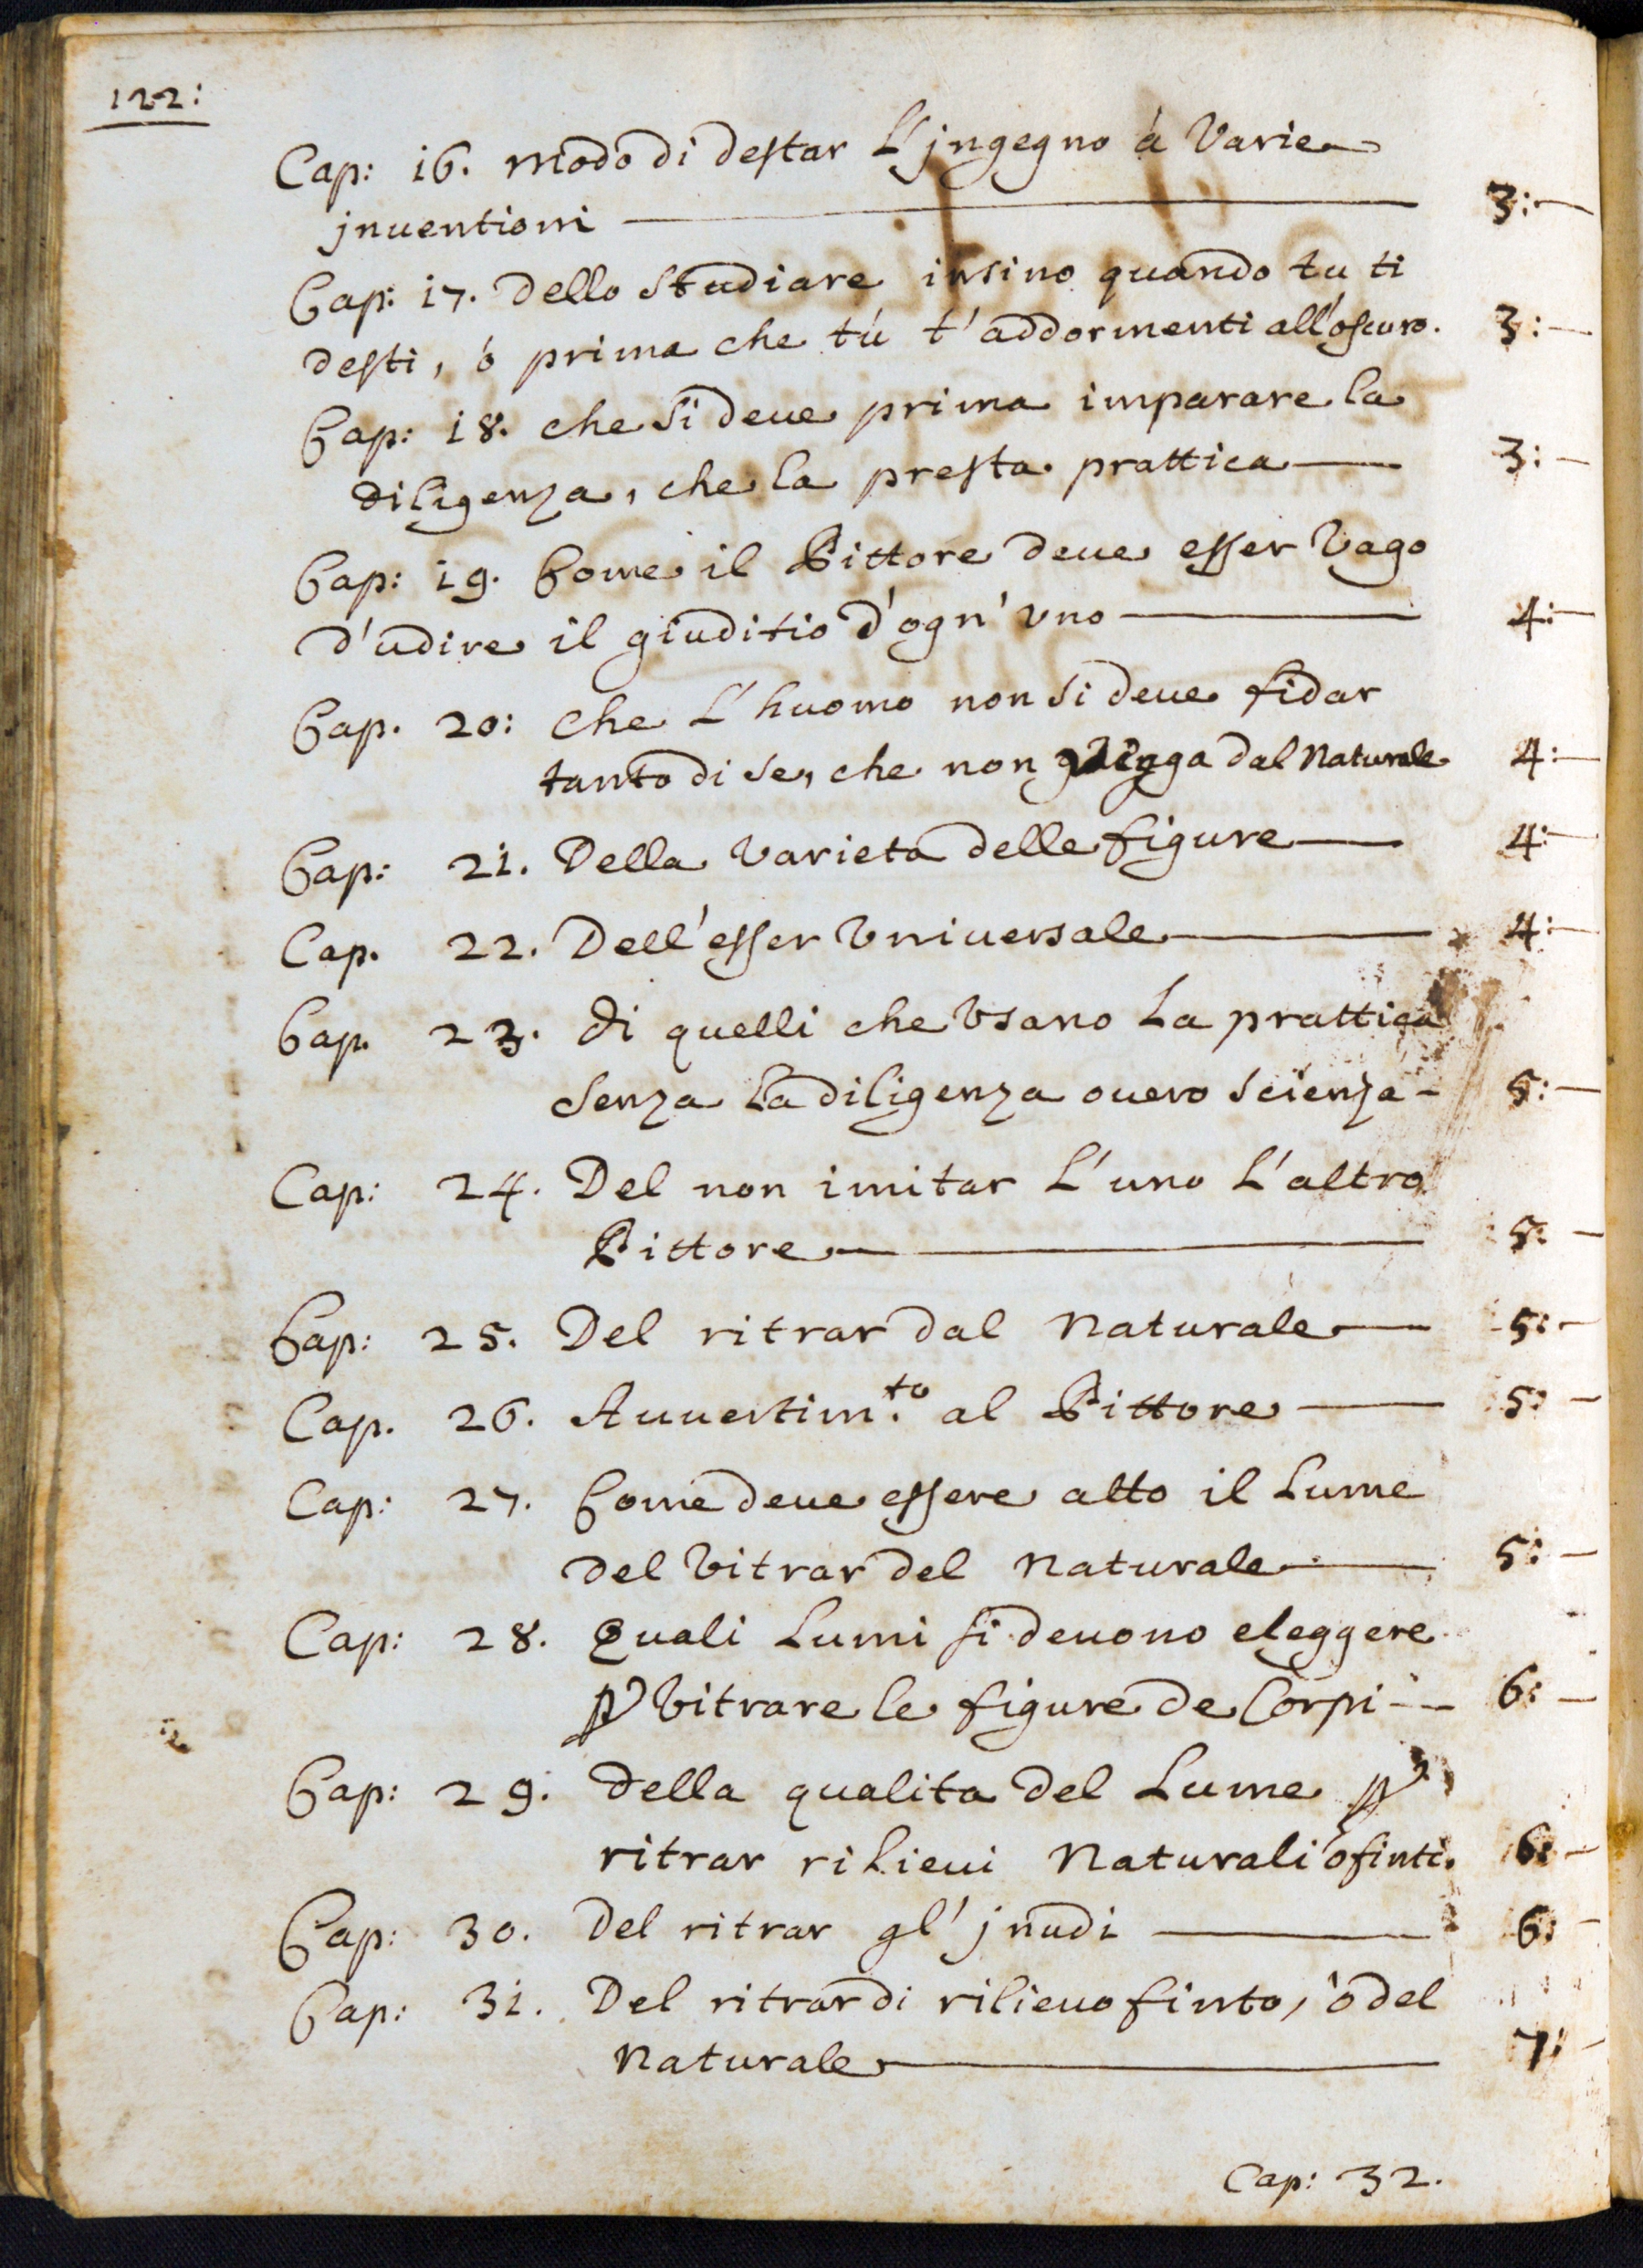 122:
Cap: 16. Modo di destar L'jngegno à Varie
jnuentioni 3:
Cap: 17. Dello studiare insino quando tu ti
desti, ò prima che tù t'addormenti all'oscuro. 3:
Cap: 18. che si deue prima imparare la
diligenza, che la presta prattica 3:
Cap: 19. Come il Pittore deue esser Vago
d'udire il giuditio d'ogn'vno 4:
Cap. 20: Che L'huomo non si deue fidar
tanto di se, che non dal Naturale 4:
Cap: 21. Della Varieta delle figure 4:
Cap. 22. Dell'esser Vniuersale 4:
Cap. 23. Di quelli che Vsano La prattica
senza La diligenza ouero scienza - 5:
Cap: 24. Del non imitar L'uno L'altro
Pittore 5:
Cap: 25. Del ritrar dal Naturale 5:
Cap. 26. Auuertim.to al Pittore 5:
Cap: 27. Come deue essere alto il Lume
del Vitrar del Naturale 5:
Cap: 28. Quali Lumi si deuono eleggere
ꝑ Vitrare le figure de Corpi 6:
Cap: 29. della qualita del Lume ꝑ
ritrar rilieui Naturali ò finti. 6:
Cap: 30. Del ritrar gl'jnudi 6:
Cap: 31. Del ritrar di rilieuo finto, ò del
Naturale 7:
Cap: 32.